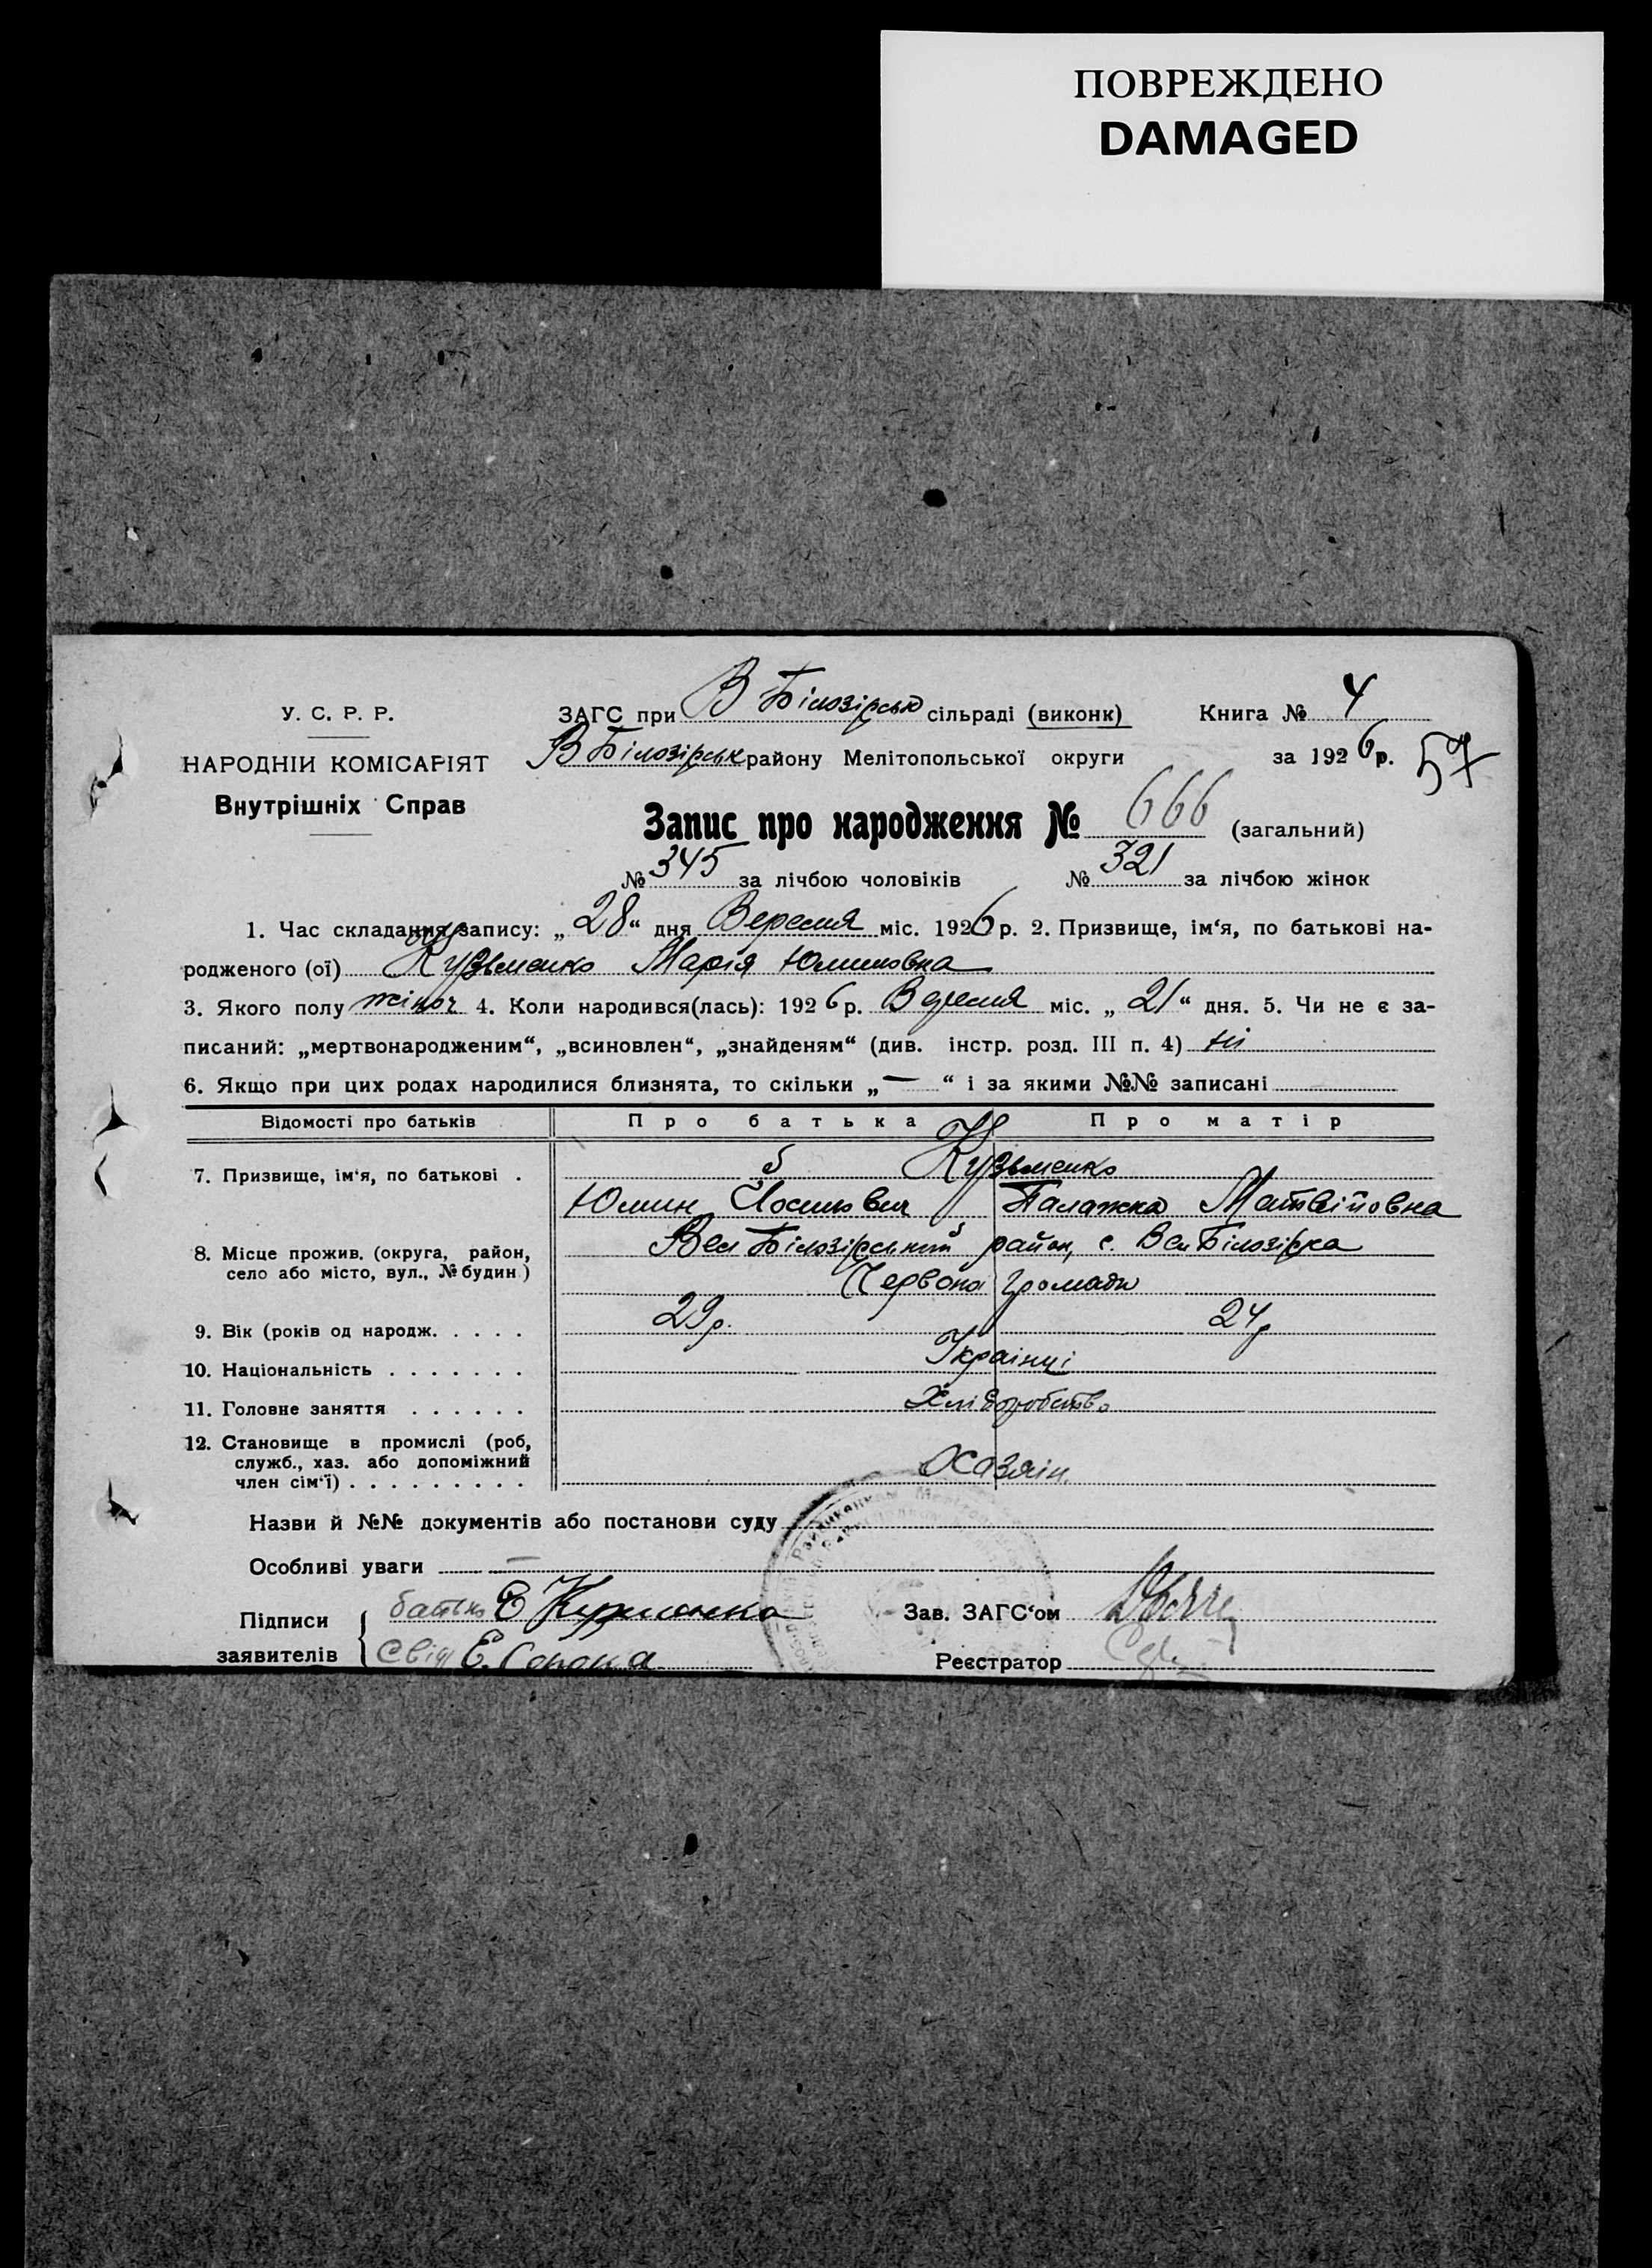 ПОВРЕЖДЕНО
DAMAGED
У. С. Р. Р.
НАРОДНІЙ КОМІСАРІЯТ
Внутрішніх Справ
ЗАГС при В Білозірськ сільраді (виконк)
В Білозірськ району Мелітопольської округи
Книга № 4
за 1926 р.
57
Запис про народження № 666 (загальний)
№ 345 за лічбою чоловіків № 321 за лічбою жінок
1. Час складання запису: „28“ дня Вересня міс. 1926 р. 2. Призвище, ім‘я, по батькові на-
родженого (ої) Кузьменко Марія Юминовна
3. Якого полу жіноч 4. Коли народився(лась): 1926 р. Вересня міс. „21“ дня. 5. Чи не є за-
писаний: „мертвонародженим“, „всиновлен“, „знайденям“ (див. інстр. розд. III п. 4) ні
6. Якщо при цих родах народилися близнята, то скільки „—“ і за якими №№ записані
Відомості про батьків Про батька Про матір
7. Призвище, ім‘я, по батькові . Кузьменко
Юмин Йосипович Палажка Матвійовна
8. Місце прожив. (округа, район, село або місто, вул., № будин.) Вел Білозірський район, с. Вел Білозірка
Червона громада
9. Вік (років од народж. . . . . 29 р. 24 р
10. Національність . . . . . . . Українці
11. Головне заняття . . . . . . Хліборобство
12. Становище в промислі (роб,
служб., хаз. або допоміжний
член сім‘ї) . . . . . . . . . Хазяін
Назви й №№ документів або постанови суду
Особливі уваги —
Підписи
заявителів
батько
Свід Е.
Зав. ЗАГС‘ом
Реєстратор